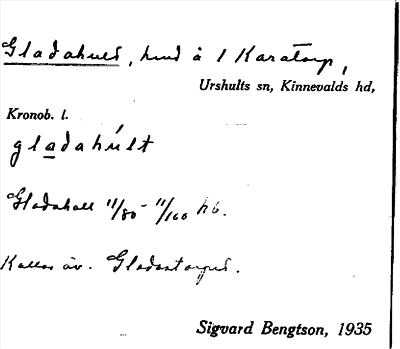 Gladahult, hmd å 1 Karatorp,
Urshults sn, Kinnevalds hd,
Kronob. l.
gladahúlt
Gladahall 11/80 - 11/160 hb.
Kallas äv. Gladastorpet.
Sigvard Bengtson, 1935